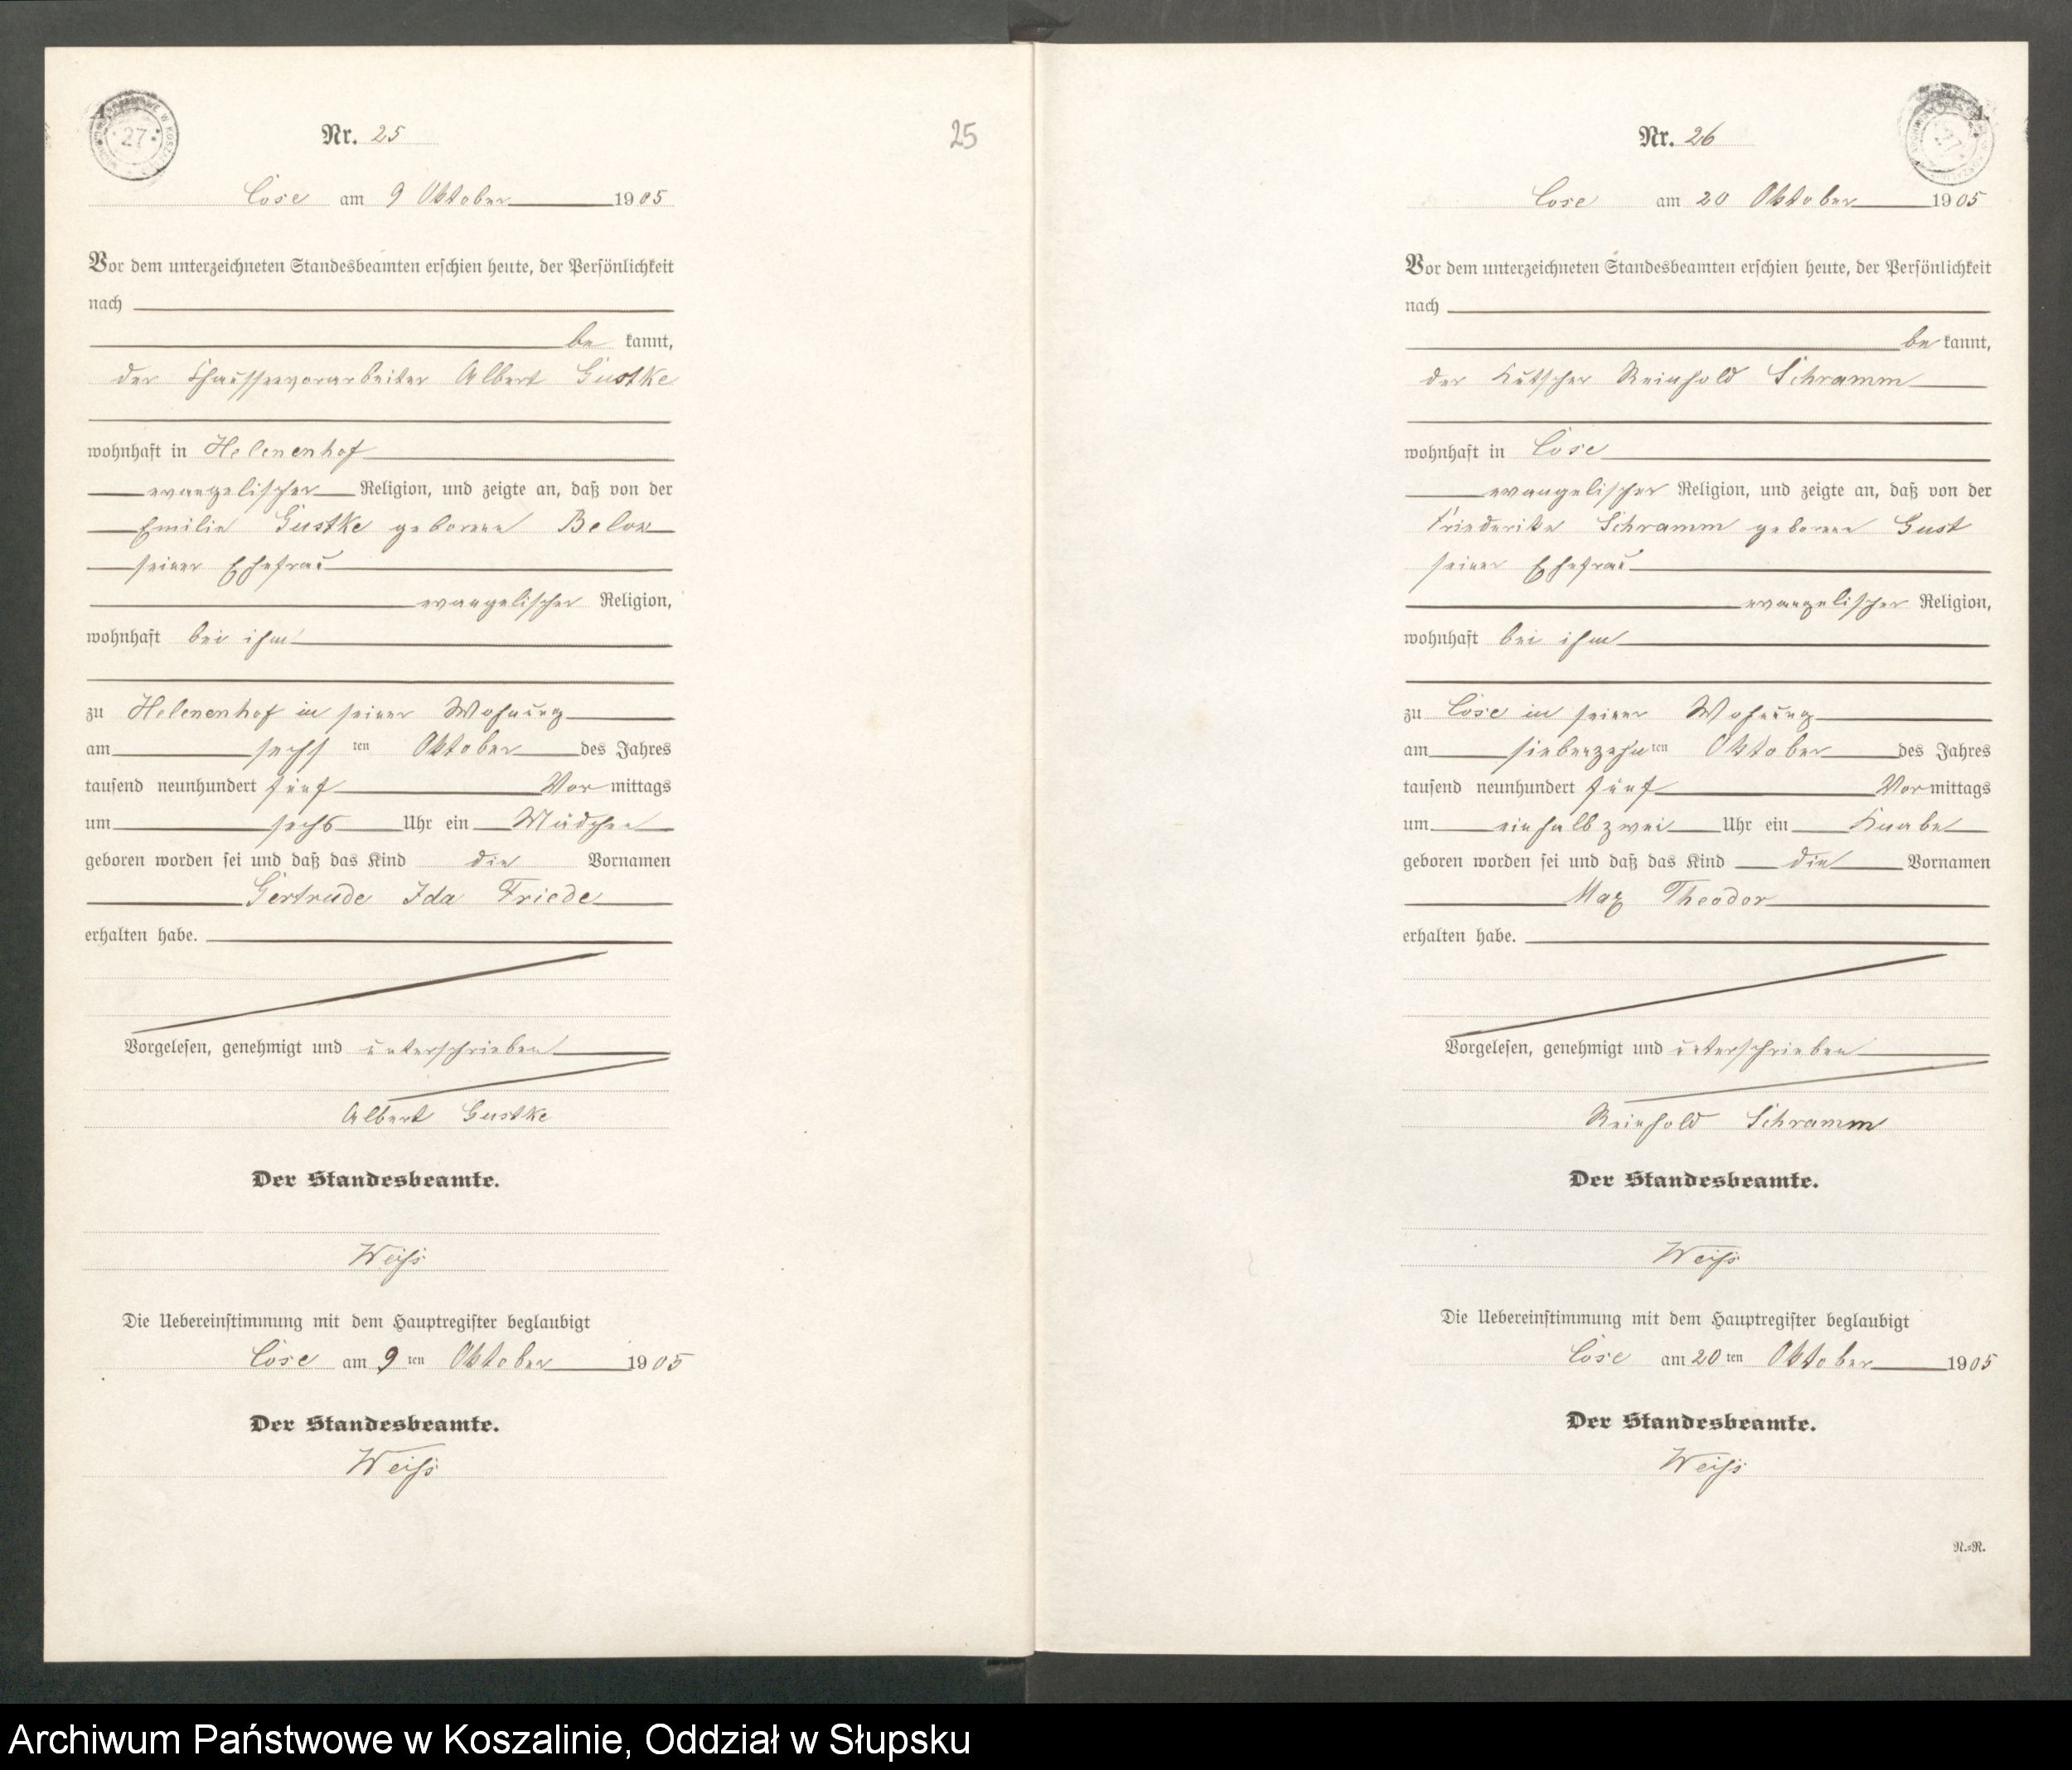 Nr. 25
25
Cose am 9 Oktober 1905
Vor dem unterzeichneten Standesbeamten erschien heute, der Persönlichkeit
nach
be kannt,
der Chausseevorarbeiter Albert Gustke
wohnhaft in Helenenhof
evangelischer Religion, und zeigte an, daß von der
Emilie Gustke geborene Below
seiner Ehefrau
evangelischer Religion,
wohnhaft bei ihm
zu Helenenhof in seiner Wohnung
am sechsten Oktober des Jahres
tausend neunhundert fünf Vor mittags
um sechs Uhr ein Mädchen
geboren worden sei und daß das Kind die Vornamen
Gertrude Ida Friede
erhalten habe.
Vorgelesen, genehmigt und unterschrieben
Albert Gustke
Der Standesbeamte.
Weiß
Die Uebereinstimmung mit dem Hauptregister beglaubigt
Cose am 9 ten Oktober 1905
Der Standesbeamte.
Weiß
Nr. 26
Cose am 20 Oktober 1905
Vor dem unterzeichneten Standesbeamten erschien heute, der Persönlichkeit
nach
be kannt,
der Kutscher Reinhold Schramm
wohnhaft in Cose
evangelischer Religion, und zeigte an, daß von der
Friederike Schramm geborene Gust
seiner Ehefrau
evangelischer Religion,
wohnhaft bei ihm
zu Cose in seiner Wohnung
am siebenzehnten Oktober des Jahres
tausend neunhundert fünf Vormittags
um einhalb zwei Uhr ein Knabe
geboren worden sei und daß das Kind die Vornamen
Max Theodor
erhalten habe.
Vorgelesen, genehmigt und unterschrieben
Reinhold Schramm
Der Standesbeamte.
Weiß
Die Uebereinstimmung mit dem Hauptregister beglaubigt
Cose am 20 ten Oktober 1905
Der Standesbeamte.
Weiß
N.=R.
Archiwum Państwowe w Koszalinie, Oddział w Słupsku